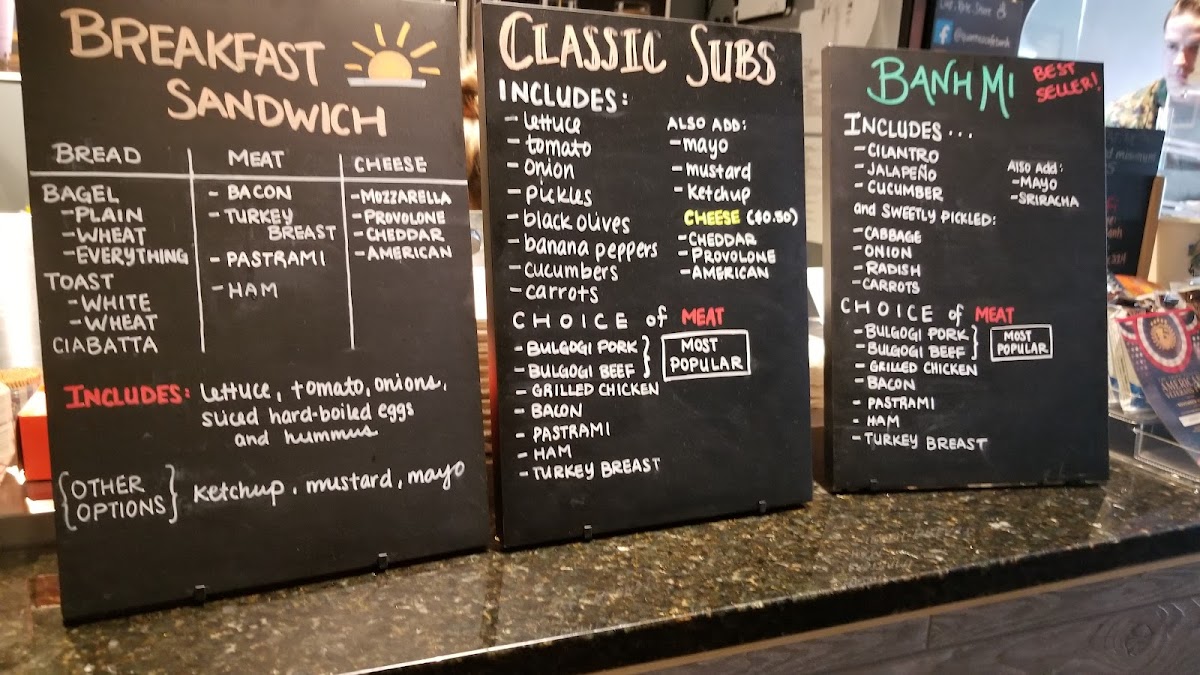 BREAKFAST
SANDWICH
BREAD
BAGEL
-PLAIN
-WHEAT
-EVERYTHING
TOAST
-WHITE
-WHEAT
CIABATTA
MEAT
- BACON
- TURKEY
BREAST
- PASTRAMI
- HAM
CHEESE
-MOZZARELLA
-PROVOLONE
-CHEDDAR
-AMERICAN
INCLUDES: lettuce, tomato, onions,
sliced hard-boiled eggs
and hummus
{OTHER
OPTIONS} ketchup, mustard, mayo
CLASSIC SUBS
INCLUDES:
- lettuce
- tomato
- onion
- pickles
- black olives
- banana peppers
- cucumbers
- carrots
ALSO ADD:
- mayo
- mustard
- Ketchup
CHEESE ($0.50)
- CHEDDAR
- PROVOLONE
- AMERICAN
CHOICE of MEAT
- BULGOGI PORK
- BULGOGI BEEF
MOST
POPULAR
- GRILLED CHICKEN
- BACON
- PASTRAMI
- HAM
- TURKEY BREAST
BANH MI
BEST
SELLER!
INCLUDES...
- CILANTRO
- JALAPEÑO
- CUCUMBER
and SWEETLY PICKLED:
- CABBAGE
- ONION
- RADISH
- CARROTS
Also Add:
-MAYO
-SRIRACHA
CHOICE of MEAT
- BULGOGI PORK
- BULGOGI BEEF
MOST
POPULAR
- GRILLED CHICKEN
- BACON
- PASTRAMI
- HAM
- TURKEY BREAST